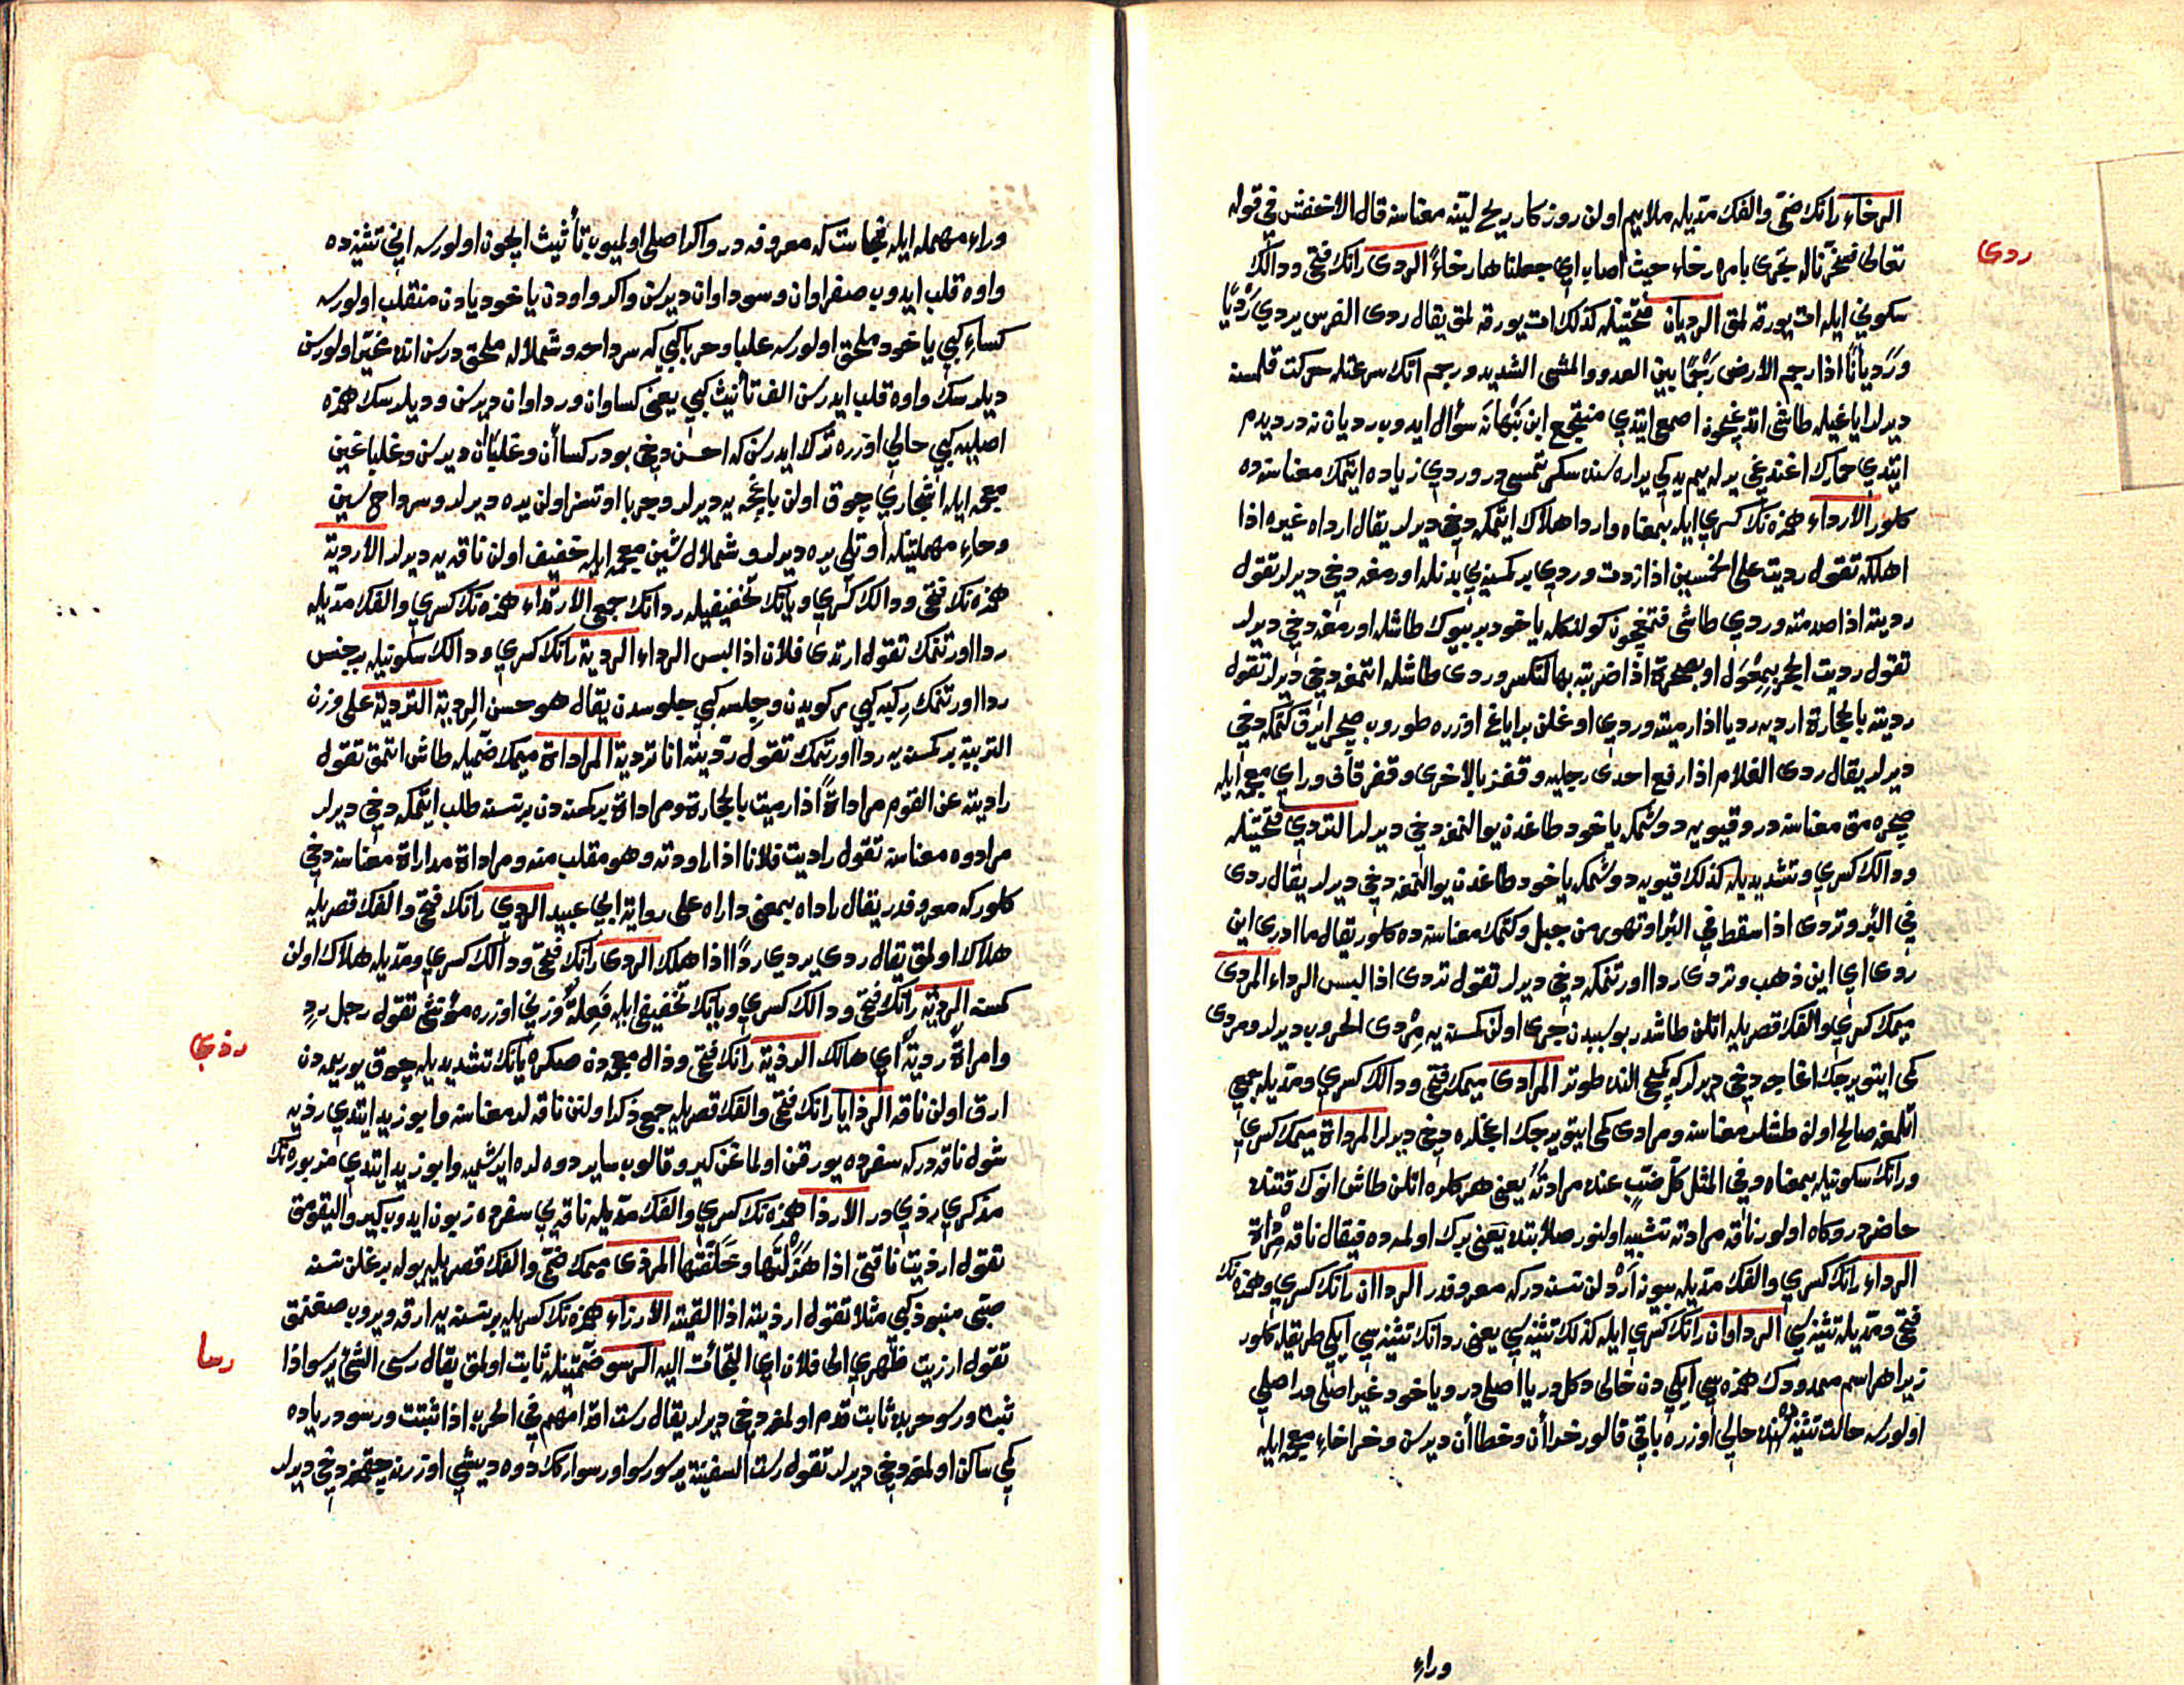 الرخاء رانك ضمّى والفك مدّيله ملايم اولن روزكار ريح لينه معناسنه قال الاخفش فى قوله
ردى
تعالى فسخّرنا له تجرى بامره رخاء حيث اصاب اي جعلناها رخاءً الردى رانك فتحى ودالك
سكونى ايله ات يورتمق الرديان فتحتينله كذلك ات يورتمق يقال ردى الفرس يردي رَدْيًا
ورَدَيانًا اذا رجم الارض رجمًا بين العدو والمشى الشديد ورجم اتك سرعتله حركت قلمسنه
ديرلر اياغيله طاشى اتديغيچون اصمعى ايتدي منتجع ابن نبهانه سؤال ايدوب رديان نه در ديدم
ايتدي حمارك اغنديغى يرله يم يديكى يراره سنده سكرتمسى در وردي زياده ايتمك معناسنده
كلور الارداء همزه نك كسري ايله بمعناه وارداء هلاك ايتمكه دخى ديرلر يقال ارداه غيره اذا
اهلكه تقول رديت على الخمسين اذا زدت وردي بر كمسنه يي بدنله اورمغه دخى ديرلر تقول
رديته اذا صدمته وردي طاشى قتمغيچون كولنكله ياخود بر بيوك طاشله اورمغه دخى ديرلر
تقول رديت الحجر بمِعْوَل او بصخرة اذا ضربته بها لتكسر وردى طاشله اتمغه دخى ديرلر تقول
رديته بالحجارة ارديه رديا اذا رميته وردي اوغلن بر اياغ اوزره طوروب صچرايرق كتمكه دخى
ديرلر يقال ردى الغلام اذا رفع احدى رجليه وقفز بالاخرى وقفز قاف وراي معجمه ايله
صچره مق معناسنه در وقيويه دوشمكه ياخود طاغدن يوالنمغه دخى ديرلر التردي فتحتينله
ودالك كسري وتشديديله كذلك قيويه دوشمكه ياخود طاغدن يوالنمغه دخى ديرلر يقال ردى
فى البئر وتردى اذا سقط في البئر او تهور من جبل وكتمك معناسنده كلور يقال ما ادرى اين
ردى اي اين ذهب وتردى ردا اورتنمكه دخى ديرلر تقول تردى اذا لبس الرداء المردى
ميمك كسري والفك قصريله اتلن طاشدر بوسببدن جرى اولن كمسنه يه مِرْدى الحروب ديرلر ومردى
كمى ايتويرجك اغاجه دخى ديرلر كه كميجى النده طوتر المرادى ميمك فتحى ودالك كسري ومدّيله جمعى
اتلمغه صالح اولن طشلر معناسنه ومرادى كمى ايتويرجك اغجلره دخى ديرلر المرداة ميمك كسري
ورانك سكونيله بمعناه وفي المثل كلّ ضبٍّ عنده مرداتُهُ يعنى هر كلره اتلن طاش انوك قتنده
حاضردر وكاه اولور ناقه مرداته تشبيه اولنور صلابتده يعنى پرك اولمده فيقال ناقة مِرْداة
الرداء رانك كسري والفك مدّيله بيوز آرد لن نسنه در كه معروفدر الرداان رانك كسري وهمزه نك
فتحى ومدّيله تثنيه سى الرداوان رانك كسري ايله كذلك تثنيه سى يعنى ردانك تثنيه سي ايكى طريقله كلور
زيرا هر اسم ممدودك همزه سى ايكى دن خالى دكلدر يا اصلى در ويا خود غير اصلى در اصلي
اولورسه حالت تثنيه ده حالى اوزره باقى قالور خدا أن وخطا أن ديرسن وخراخاء معجمه ايله
وراء
وراء مهمله ايله نجاست كه معروفه در واكر اصلى اولميوب تأنيث ايچون اولورسه انى تثنيه ده
واوه قلب ايدوب صفراوان وسوداوان ديرسن واكر واودن ياخود يادن منقلب اولورسه
كساء كبى ياخود ملحق اولورسه علبا وحربا كبى كه سرداحه وشملاله ملحق درسن انده مخيّر اولورسن
ديلرسك واوه قلب ايدرسن الف تأنيث كبي يعنى كساوان ورداوان ديرسن وديلرسك همزه
اصليه كبى حالى اوزره ترك ايدرسن كه احسن دخى بودر كساأن وعلباأن ديرسن وعلبا عين
معجمه ايله اشجاري چوق اولن باغچه يه ديرلر وحربا اوتسز اولن يره ديرلر وسرداح سين
وحاء مهملتينله اوتلى يره ديرلر وشملال شين معجمه ايله خفيف اولن ناقه يه ديرلر الاردية
همزه نك فتحى ودالك كسري ويانك تخفيفيله ردانك جمعى الارتداء همزه نك كسري والفك مدّيله
ردا اورتنمك تقول ارتدى فلان اذا لبس الرداء الردية رانك كسري ودالك سكونيله بر جنس
ردا اورتنمك رِكبه كبى ركوبدن وجِلسه كبى جلوسدن يقال هو حسن الردية التردية على وزن
التربية بر كمسنه يه ردا اورتمك تقول ردّيته انا تردية المراداة ميمك ضمّيله طاش اتمق تقول
راديته عن القوم مراداةً اذا رميت بالحجارة ومراداة بر كمسه دن بر نسنه طلب ايتمكه دخى ديرلر
مراوده معناسنه تقول راديت فلانا اذا راودته وهو مقلب منه ومراداة مداراة معناسنه دخى
كلور كه معروفدر يقال راداه بمعنى داراه على رواية ابي عبيد الردي رانك فتحى والفك قصريله
هلاك اولمق يقال ردى يردي ردًا اذا هلك الردى رانك فتحى ودالك كسري ومدّيله هلاك اولن
كمسه الردية رانك فتحى ودالك كسري ويانك تخفيفى ايله فَعِلَة وزنى اوزره مؤنثى تقول رجل ردٍ
وامراة ردية اي هالك الرذية رانك فتحى وذال معجمه دن صكره يانك تشديديله چوق يوريمه دن
رذى
ارق اولن ناقه الرذايا رانك فتحى والفك قصريله جمعى ذكر اولنن ناقه لر معناسنه وابو زيد ايتدي رذيه
شول ناقه در كه سفرده يورقن اولمغن كيرو قالوب ساير دوه لره ايرشميه وابو زيد ايتدي مزبوره نك
مذكري رذي در الارذا همزه نك كسري والفك مدّيله ناقه يي سفرده زبون ايدوب كيرو اليقومق
تقول ارذيت ناقتى اذا هَزَلْتَها وخلّفتها المرذى ميمك ضمّى والفك قصريله يوله براغلن نسنه
صبّى منبوذ كبى مثلا تقول ارذيته اذا القيته الارزاء همزه نك كسريله بر نسنه يه ارقه ويروب صغنمق
تقول ارزيت ظهري الى فلان اي التجأت اليه الرسو ضمّتينله ثابت اولمق يقال رسى الشئ يرسو اذا
رسا
ثبت ورسو حربده ثابت قدم اولمغه دخى ديرلر يقال رست اقدامهم في الحرب اذا ثبتت ورسو درياده
كمى ساكن اولمغه دخى ديرلر تقول رست السفينة يرسو رسوا ورسوارك دوه ديشى اوزرينه چقمغه دخى ديرلر